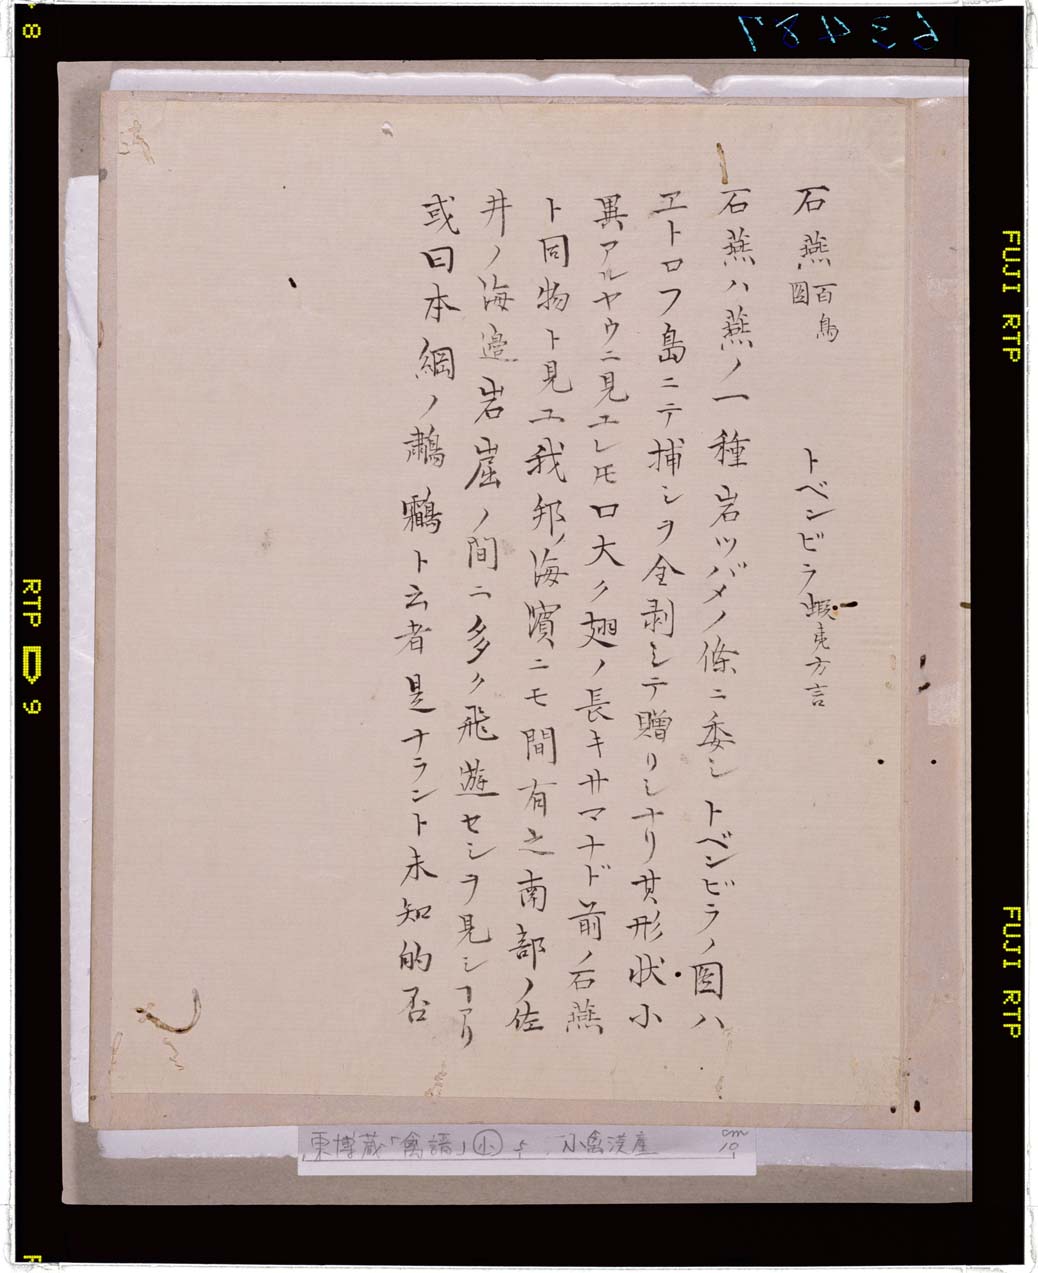 石燕 百鳥圖 トベンビラ 蝦夷方言
石燕ハ燕ノ一種岩ツバメノ條ニ委シトベンビラノ圖ハ
ヱトロフ島ニテ捕シヲ全剥シテ贈リシナリ其形状小
異アルヤウニ見エレㇳモ口大ク翅ノ長キサマナド前ノ石燕
ト同物ト見ユ我邦ノ海濱ニモ間有之南部ノ佐
井ノ海邉岩崖ノ間ニ多ク飛遊セシヲ見シヿアリ
或曰本綱ノ鷫鸘ト云者是ナラント未知的否
東博蔵「禽譜」小
cm
19
63487
8
RTP 9
FUJI RTP
FUJI RTP